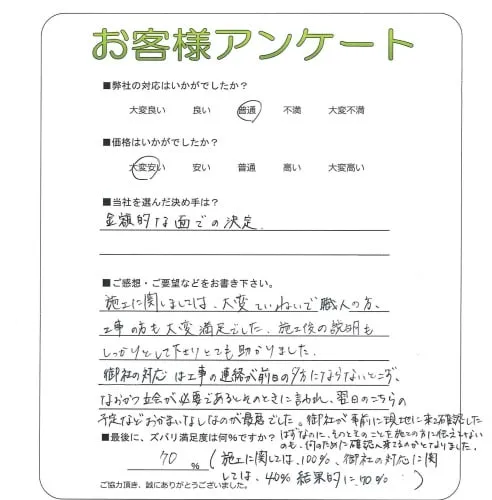 お客様アンケート
■弊社の対応はいかがでしたか？
大変良い　良い　普通　不満　大変不満
■価格はいかがでしたか？
大変安い　安い　普通　高い　大変高い
■当社を選んだ決め手は？
金額的な面での決定.
■ご感想・ご要望などをお書き下さい。
施工に関しましては、大変ていねいで職人の方、
工事の方も大変満足でした。施工後の説明も
しっかりとして下さりとても助かりました。
御社の対応は工事の連絡が前日の夕方にならないとこず、
なおかつ立会が必要であるとそのときに言われ、翌日のこちらの
予定などおかまいなしなのが最悪でした。御社が事前に現地に来て確認した
はずなのに、そのときのことを施工の方に伝えてない
のも、何のために確認に来てるのかとなりました。
■最後に、ズバリ満足度は何%ですか？
70 %
(施工に関しては、100%、御社の対応に関
しては、40% 結果的に70%)
ご協力頂き、誠にありがとうございました。